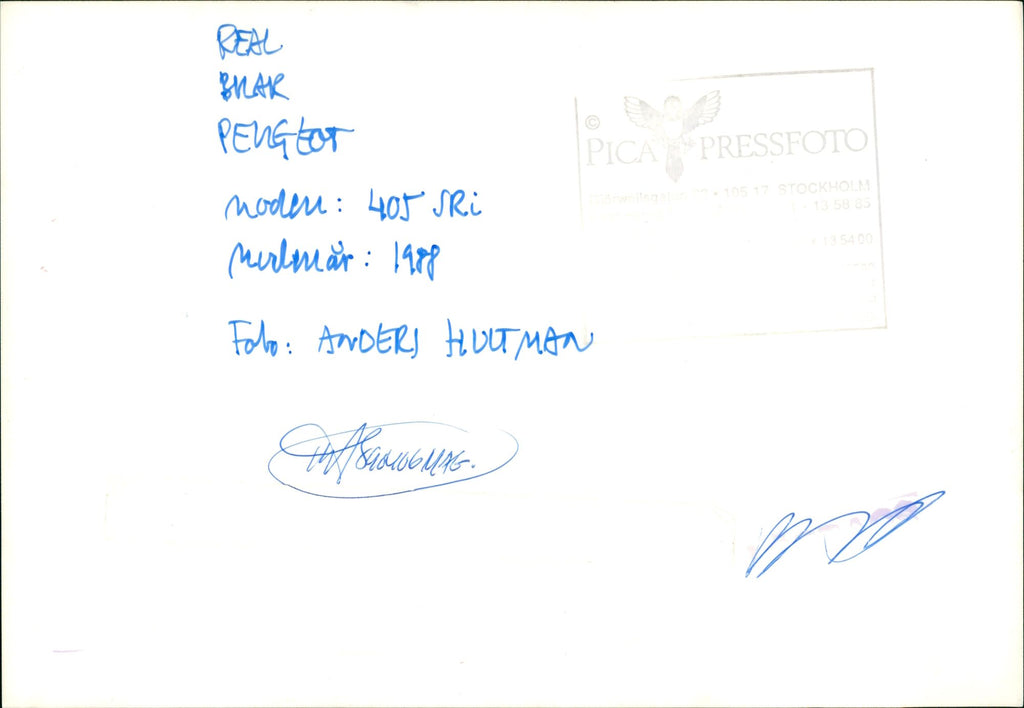 REAL
BILAR
PEUGEOT
modell: 405 SRi
modellår: 1988
Foto: ANDERS HULTMAN
©
PICA PRESSFOTO
105 17 STOCKHOLM
13 58 65
13 54 00